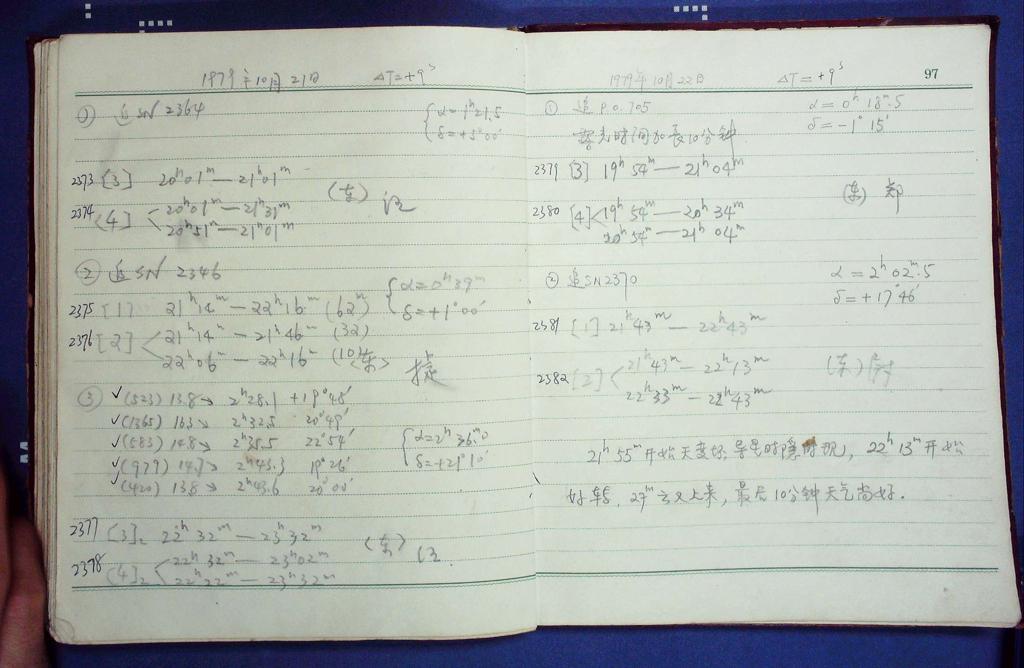 1979年10月21日 ΔT=+9ˢ
① 追SN 2364
α=1ʰ21.5
δ=+5°00′
2373 [3] 20ʰ01ᵐ—21ʰ01ᵐ
(东) 江
2374 [4] 20ʰ01ᵐ—21ʰ31ᵐ
20ʰ51ᵐ—21ʰ01ᵐ
② 追SN 2346
α=0ʰ39ᵐ
δ=+1°00′
2375 [1] 21ʰ14ᵐ—22ʰ16ᵐ (62ᵐ)
2376 [2] 21ʰ14ᵐ—21ʰ46ᵐ (32)
22ʰ06ᵐ—22ʰ16ᵐ (10) (东)
③ ✓(523) 13.8→ 2ʰ28.1 +19°48′
✓(1365) 16.3→ 2ʰ32.5 20°49′
✓(583) 14.8→ 2ʰ35.5 22°54′
✓(979) 14.7→ 2ʰ43.3 19°26′
✓(420) 13.8→ 2ʰ43.6 20°00′
α=2ʰ36ᵐ.0
δ=+21°10′
2377 [3]₂ 22ʰ32ᵐ—23ʰ32ᵐ
(东) 江
2378 [4]₂ 22ʰ32ᵐ—23ʰ02ᵐ
22ʰ22ᵐ—23ʰ32ᵐ
1979年10月22日 ΔT=+9ˢ 97
① 追P.O.705
α=0ʰ18ᵐ.5
δ=-1°15′
露光时间加長10分钟
2379 [3] 19ʰ54ᵐ—21ʰ04ᵐ
(东) 郑
2380 [4] 19ʰ54ᵐ—20ʰ34ᵐ
20ʰ54ᵐ—21ʰ04ᵐ
② 追SN2370
α=2ʰ02ᵐ.5
δ=+17°46′
2381 [1] 21ʰ43ᵐ—22ʰ43ᵐ
2382 [2] 21ʰ43ᵐ—22ʰ13ᵐ
22ʰ33ᵐ—22ʰ43ᵐ
(东)
21ʰ55ᵐ开始天变坏,导星时隐时现,22ʰ13ᵐ开始
好转,27ᵐ云又上来,最后10分钟天气尚好.